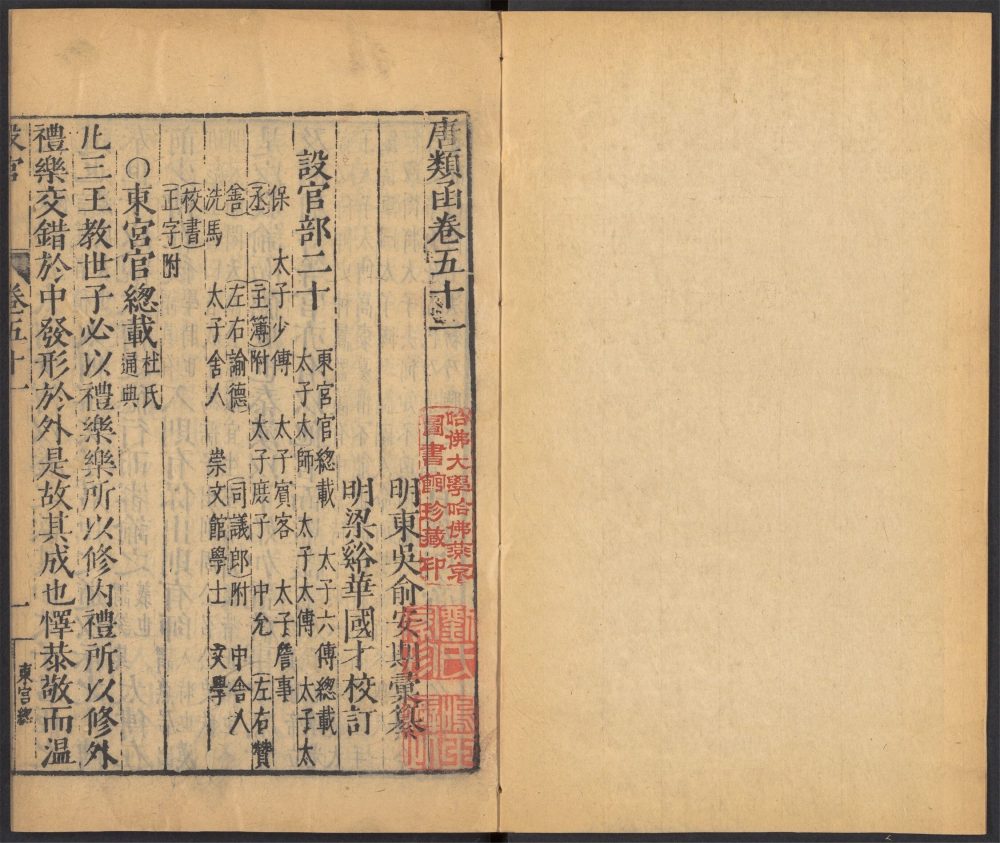 唐類函卷五十一
明東吳俞安期彙纂
明梁谿華國才校訂
設官部二十
東宮官總載 太子六傅總載
太子太師 太子太傅 太子太
保 太子少傅 太子賓客 太子詹事
丞 主簿附 太子庶子 中允 左右贊
善 左右諭德 司議郎附 中舍人
洗馬 太子舍人 崇文館學士 文學
校書
正字附
○東宮官總載 杜氏通典
凡三王教世子必以禮樂樂所以修內禮所以修外
禮樂交錯於中發形於外是故其成也懌恭敬而溫
設官 卷五十一 一 東宮總
哈佛大學哈佛燕京
圖書館珍藏印